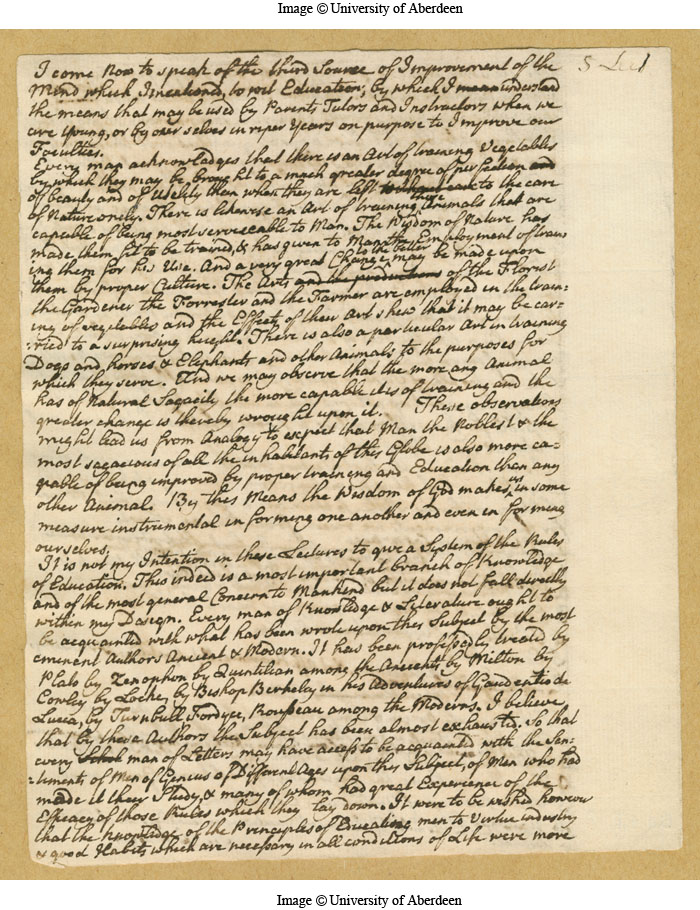 Image © University of Aberdeen
5 Lect
I come now to speak of the third Source of Improvement of the
Mind which I mentioned, to wit Education; by which I mean understand
the means that may be used by Parents Tutors and Instructors when we
are young, or by our selves in riper Years on purpose to Improve our
Faculties.
Every man acknowledges that there is an Art of training Vegetables
by which they may be brought to a much greater degree of perfection and
of beauty and of Utility than when they are left to the care
of Nature only. There is likewise an Art of training those Animals that are
capable of being most serviceable to Man. The Wisdom of Nature has
made them fit to be trained, & has given to Man the Employment of train=
ing them for his Use. And a very great Change to the better may be made upon
them by proper Culture. The Arts and the productions of the Florist
the Gardener the Forrester and the Farmer are employed in the train=
ing of vegetables and the Effects of their Art shew that it may be car=
=ried to a surprising height. There is also a particular Art in training
Dogs and horses & Elephants and other Animals to the purposes for
which they serve. And we may observe that the more any Animal
has of Natural Sagacity the more capable it is of training and the
greater change is thereby wrought upon it. These observations
might lead us from Analogy to expect that Man the Noblest & the
most sagacious of all the inhabitants of this Globe is also more ca=
pable of being improved by proper training and Education than any
other Animal. By this Means the Wisdom of God makes us in some
measure instrumental in forming one another and even in forming
ourselves.
It is not my Intention in these Lectures to give a System of the Rules
of Education. This indeed is a most important branch of Knowledge
and of the most general Concern to Mankind but it does not fall directly
within my Design. Every man of Knowledge & Literature ought to
be acquainted with what has been wrote upon this Subject by the most
eminent Authors Ancient & Modern. It has been professedly treated by
Plato by Xenophon by Quintilian among the Ancients by Milton by
Cowley by Locke, by Bishop Berkeley in his Adventures of Gaudentio de
Lucca, by Turnbull Fordyce, Rousseau among the Moderns. I believe
that by these Authors the Subject has been almost exhausted. So that
every Schol man of Letters may have access to be acquainted with the Sen=
=timents of Men of Genius of Different Ages upon this Subject, of Men who had
made it their Study, & many of whom had great Experience of the
Efficacy of those Rules which they lay down. It were to be wished however
that the knowledge of the Principles of Educating men to Virtue industry
& good Habits which are necessary in all conditions of Life were more
Image © University of Aberdeen